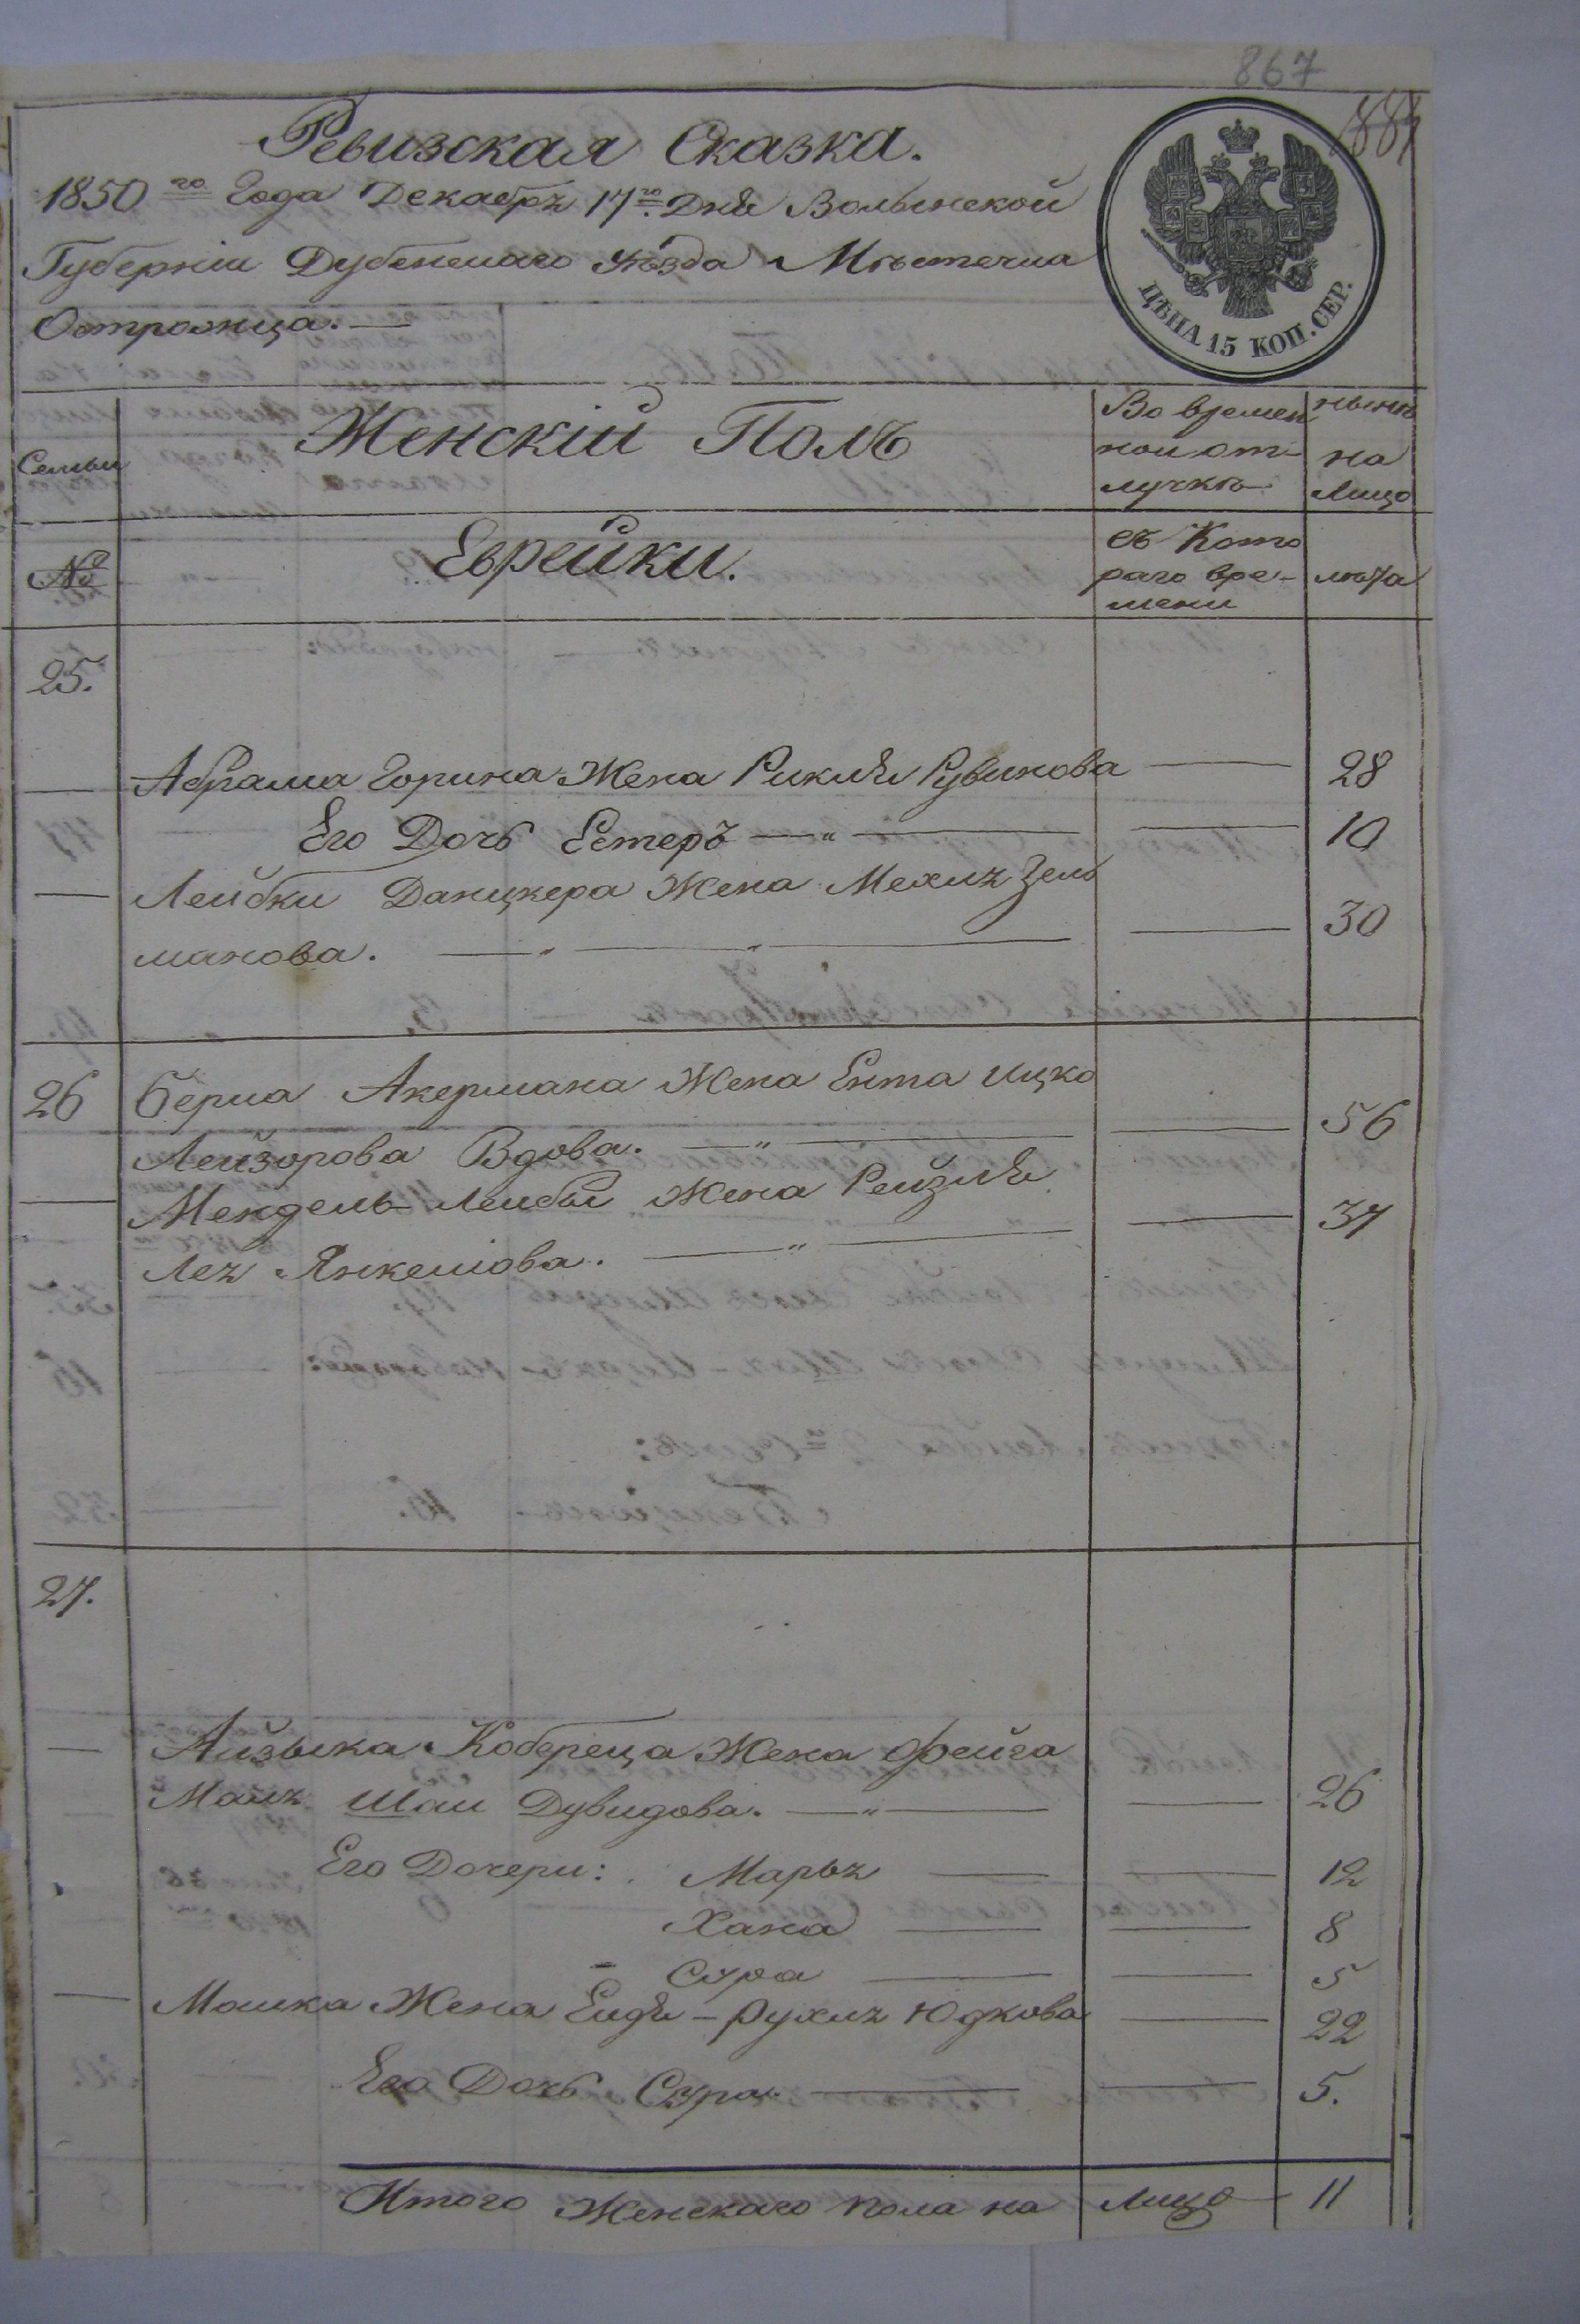 867
1884
Ревизская Сказка.
1850го Года Декабря 17го Дня Волынской
Губерніи Дубенскаго уѣзда Мѣстечка
Острожца.
ЦѢНА 15 КОП. СЕР.
Семьи
Женскій Полъ
Во времен
ной от-
лучкѣ
нынѣ
на
Лицо
№
Еврейки.
съ Кото
раго вре-
мени
лѣта
25.
Абрама Горина Жена Рикля Рувинова 28
Его Дочь Естеръ 10
Лейбки Данцкера Жена Мехля Зель
манова. 30
26 Берка Акермана Жена Ента Ицко
Лейзорова Вдова. 56
Мендель Лейбы Жена Рейзля
Лея Янкелiова. 37
27.
Айзыка Кобереца Жена Фейга
Маля Шаи Дувидова. 26
Его Дочери: Марья 12
Хана 8
Сура 5
Мошка Жена Ейдя-Рухля Юдкова 22
Его Дочь Сура. 5.
Итого Женскаго пола на Лицо 11